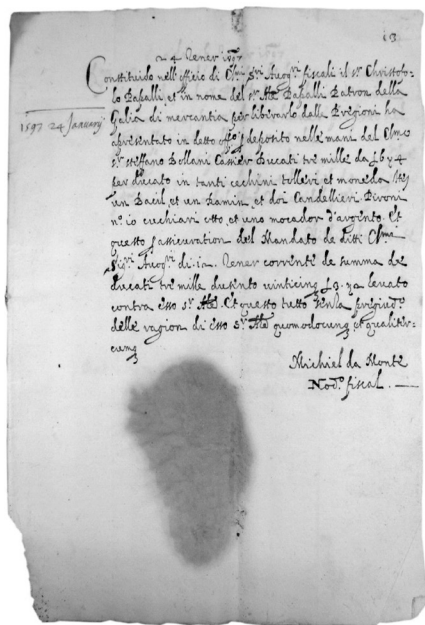 13
24 Zener 1597
Constituido nell'officio di Clmi Sri Avogri fiscali il sr Christofo-
lo Pasalli, et in nome del sr Pasalli Patron della
Galia di mercantia per liberarlo dalla Prigioni ha
apresentato in detto deposito nelle mani del Clmo
sr stiffano Bollani Cassier Ducati tre mille da £ 6 y 4
per ducato in tanti cechini tolleri et moneda
un Bacil, et un Ramin, et doi Candellieri, Pironi
no 10 cuchiari otto, et uno mocador d'argento. Et
questo assicuration del Mandato de ditti Clmi
Sigri Avogri di. 12. Zener corrente de summa de
ducati tre mille dusento vinticinq levato
contra esso sr Et questo tutto senza pregiudo
delle ragion di esso sr quomodocunq et qualiter-
cunq
Michiel da Monte
Nodo fiscal.
1597 24 January